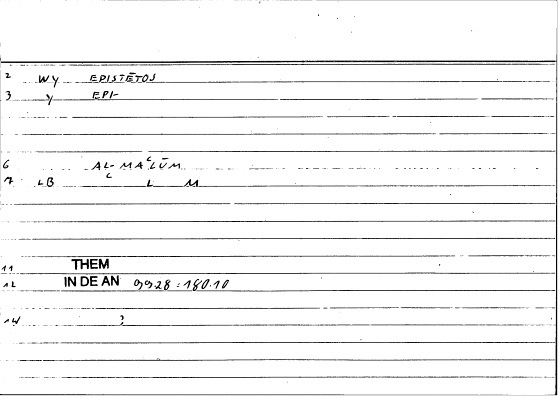 2 WY EPISTĒTOS
3 Y EPI-
6 AL-MAʿLŪM
7 LB ʿ L M
11 THEM
12 IN DE AN 9928:180.10
14 ;